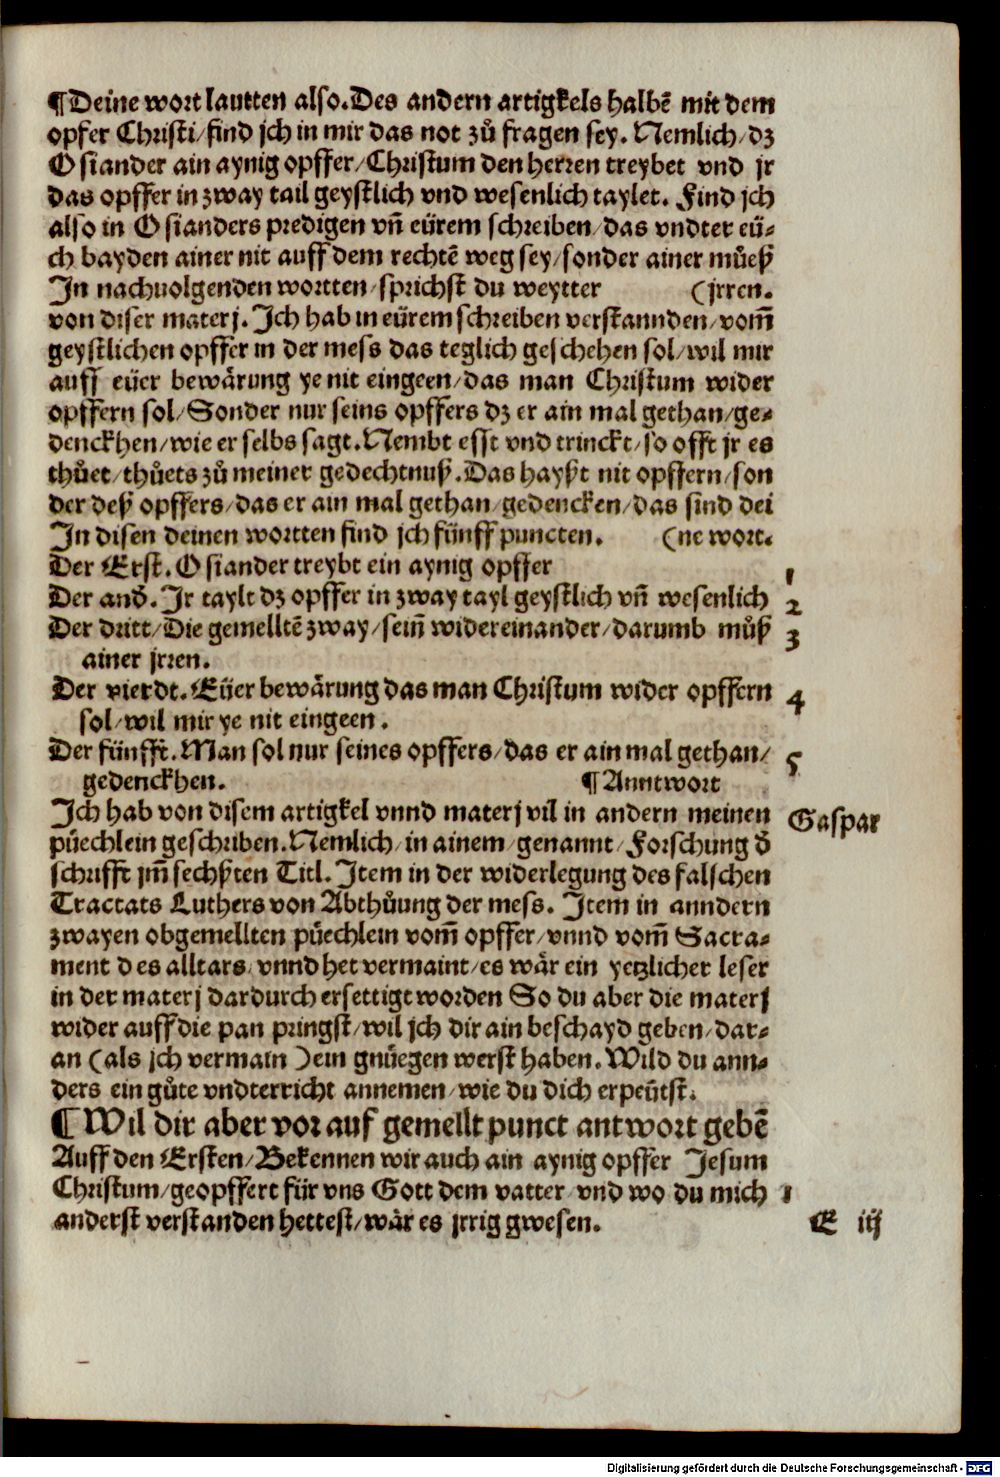 ¶Deine wort lautten also. Des andern artigkels halbē mit dem
opfer Christi/ find jch in mir das not zů fragen sey. Nemlich/ dz
Osiander ain aynig opffer/ Christum den herren treybet vnd jr
das opffer in zway tail geystlich vnd wesenlich taylet. Find jch
also in Osianders predigen vñ eürem schreiben/ das vndter eü-
ch bayden ainer nit auff dem rechtē weg sey/ sonder ainer müeß
In nachuolgenden wortten/ sprichst du weytter (jrren.
von diser materj. Ich hab in eürem schreiben verstannden/ vom̄
geystlichen opffer in der mess das teglich geschehen sol/ wil mir
auff eüer bewärung ye nit eingeen/ das man Christum wider
opffern sol/ Sonder nur seins opffers dz er ain mal gethan/ ge-
denckhen/ wie er selbs sagt. Nembt esst vnd trinckt/ so offt jr es
thůet/ thůets zů meiner gedechtnuß. Das hayßt nit opffern/ son
der deß opffers/ das er ain mal gethan/ gedencken/ das sind dei
In disen deinen wortten find jch fünff puncten. (ne wort.
Der Erst. Osiander treybt ein aynig opffer 1
Der and̄. Ir taylt dz opffer in zway tayl geystlich vñ wesenlich 2
Der dritt/ Die gemelltē zway/ sein̄ widereinander/ darumb můß 3
ainer jrren.
Der vierdt. Eüer bewärung das man Christum wider opffern 4
sol/ wil mir ye nit eingeen.
Der fünfft. Man sol nur seines opffers/ das er ain mal gethan/ 5
gedenckhen. ¶Anntwort
Ich hab von disem artigkel vnnd materj vil in andern meinen Gaspar
püechlein geschriben. Nemlich/ in ainem/ genannt/ Forschung d̄
schrifft jm̄ sechßten Titl. Item in der widerlegung des falschen
Tractats Luthers von Abthůung der mess. Item in anndern
zwayen obgemellten püechlein vom̄ opffer/ vnnd vom̄ Sacra-
ment des alltars/ vnnd het vermaint/ es wär ein yetzlicher leser
in der materj dardurch ersettigt worden So du aber die materj
wider auff die pan pringst/ wil jch dir ain beschayd geben/ dar-
an (als jch vermain) ein gnüegen werst haben. Wild du ann-
ders ein gůte vndterricht annemen/ wie du dich erpeütst.
¶Wil dir aber vor auf gemellt punct antwort gebē
Auff den Ersten/ Bekennen wir auch ain aynig opffer Jesum
Christum/ geopffert für vns Gott dem vatter/ vnd wo du mich 1
anderst verstanden hettest/ wär es jrrig gwesen.
E iij
Digitalisierung gefördert durch die Deutsche Forschungsgemeinschaft - DFG